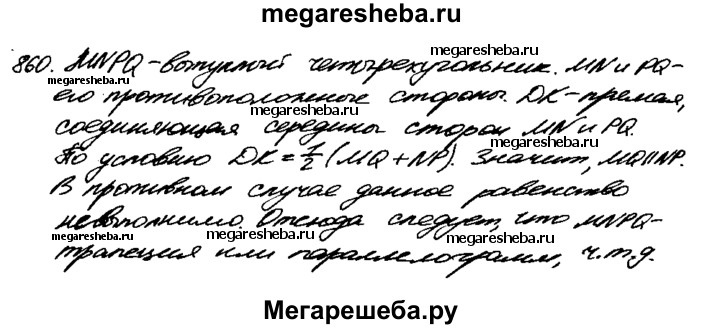 megaresheba.ru
860. MNPQ - выпуклый четырехугольник. MN и PQ -
megaresheba.ru megaresheba.ru
его противоположные стороны. DK - прямая,
megaresheba.ru megaresheba.ru
соединяющая середины сторон MN и PQ.
По условию DK = 1/2 (MQ + NP). Значит, MQ || NP.
megaresheba.ru megaresheba.ru
В противном случае данное равенство
невыполнимо. Отсюда следует, что MNPQ -
megaresheba.ru megaresheba.ru megaresheba.ru
трапеция или параллелограмм, ч.т.д.
Мегарешеба.ру